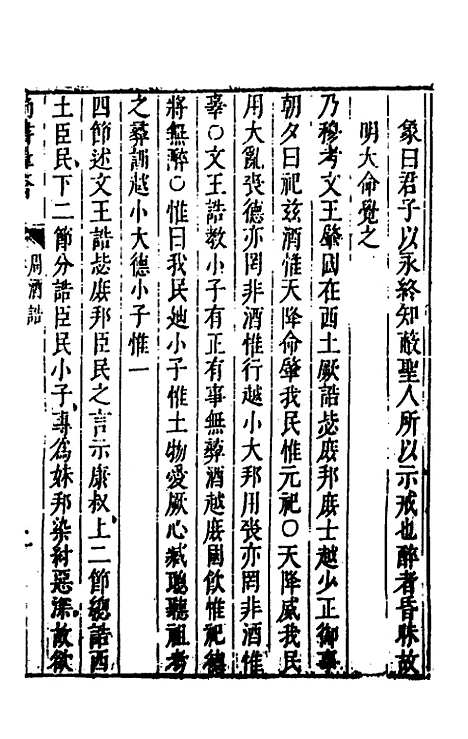 象曰君子以永終知敝聖人所以示戒也醉者昏昧故
明大命覺之
乃穆考文王肇國在西土厥誥毖庶邦庶士越少正御事
朝夕曰祀茲酒惟天降命肇我民惟元祀○天降威我民
用大亂喪德亦罔非酒惟行越小大邦用喪亦罔非酒惟
辜○文王誥教小子有正有事無彝酒越庶國飲惟祀德
將無醉○惟曰我民廸小子惟土物愛厥心臧聰聽祖考
之彝訓越小大德小子惟一
四節述文王誥毖庶邦臣民之言示康叔上二節總誥西
土臣民下二節分誥臣民小子專為妹邦染紂惡深故欲
周酒誥